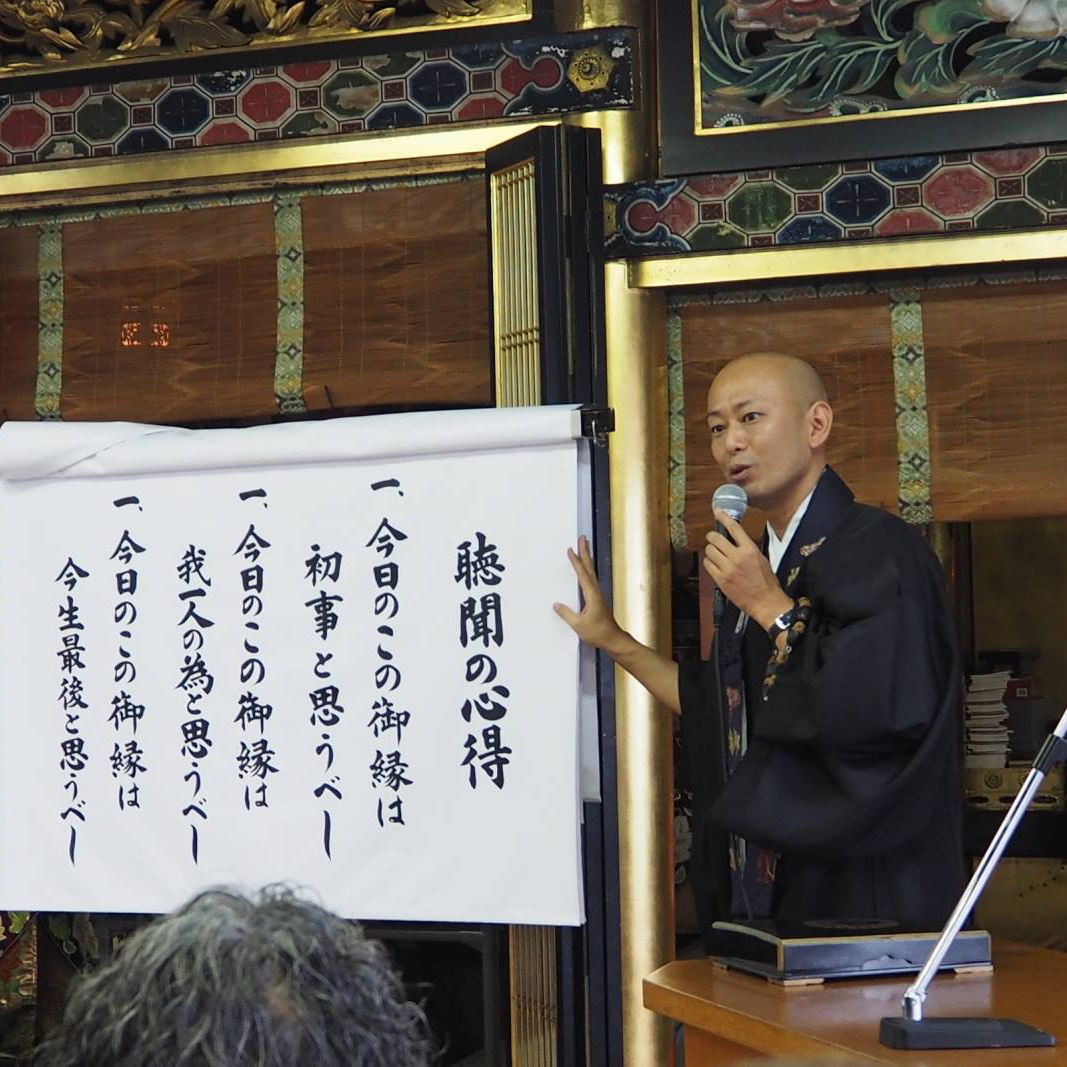 聴聞の心得
一、今日のこの御縁は
初事と思うべし
一、今日のこの御縁は
我一人の為と思うべし
一、今日のこの御縁は
今生最後と思うべし